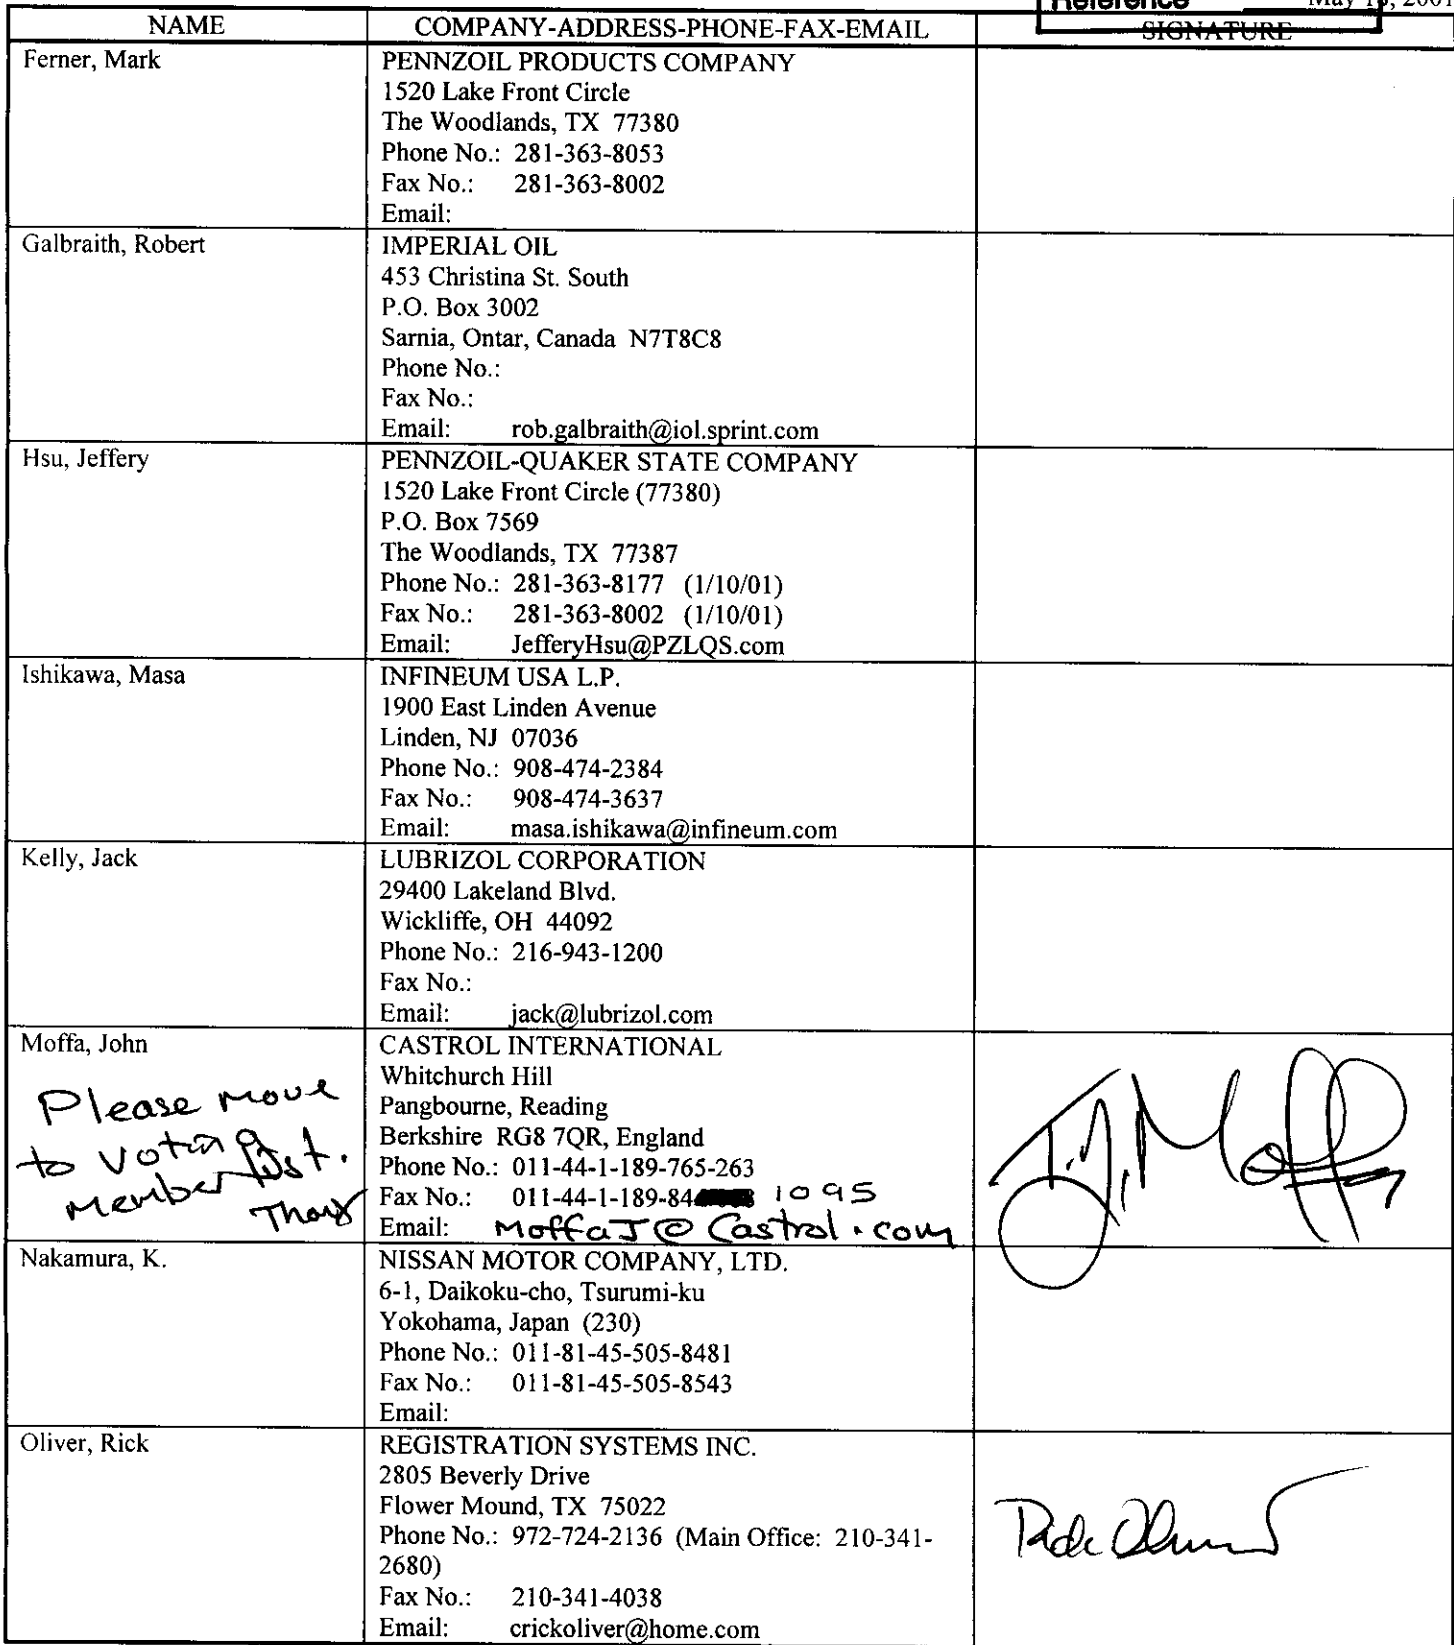 Reference
May 16, 2001
NAME
COMPANY-ADDRESS-PHONE-FAX-EMAIL
SIGNATURE
Ferner, Mark
PENNZOIL PRODUCTS COMPANY
1520 Lake Front Circle
The Woodlands, TX 77380
Phone No.: 281-363-8053
Fax No.: 281-363-8002
Email:
Galbraith, Robert
IMPERIAL OIL
453 Christina St. South
P.O. Box 3002
Sarnia, Ontar, Canada N7T8C8
Phone No.:
Fax No.:
Email: rob.galbraith@iol.sprint.com
Hsu, Jeffery
PENNZOIL-QUAKER STATE COMPANY
1520 Lake Front Circle (77380)
P.O. Box 7569
The Woodlands, TX 77387
Phone No.: 281-363-8177 (1/10/01)
Fax No.: 281-363-8002 (1/10/01)
Email: JefferyHsu@PZLQS.com
Ishikawa, Masa
INFINEUM USA L.P.
1900 East Linden Avenue
Linden, NJ 07036
Phone No.: 908-474-2384
Fax No.: 908-474-3637
Email: masa.ishikawa@infineum.com
Kelly, Jack
LUBRIZOL CORPORATION
29400 Lakeland Blvd.
Wickliffe, OH 44092
Phone No.: 216-943-1200
Fax No.:
Email: jack@lubrizol.com
Moffa, John
Please move
to voting
member list.
CASTROL INTERNATIONAL
Whitchurch Hill
Pangbourne, Reading
Berkshire RG8 7QR, England
Phone No.: 011-44-1-189-765-263
Fax No.: 011-44-1-189-84 1095
Email: MoffaJ@Castrol.com
J. Moffa
Nakamura, K.
NISSAN MOTOR COMPANY, LTD.
6-1, Daikoku-cho, Tsurumi-ku
Yokohama, Japan (230)
Phone No.: 011-81-45-505-8481
Fax No.: 011-81-45-505-8543
Email:
Oliver, Rick
REGISTRATION SYSTEMS INC.
2805 Beverly Drive
Flower Mound, TX 75022
Phone No.: 972-724-2136 (Main Office: 210-341-
2680)
Fax No.: 210-341-4038
Email: crickoliver@home.com